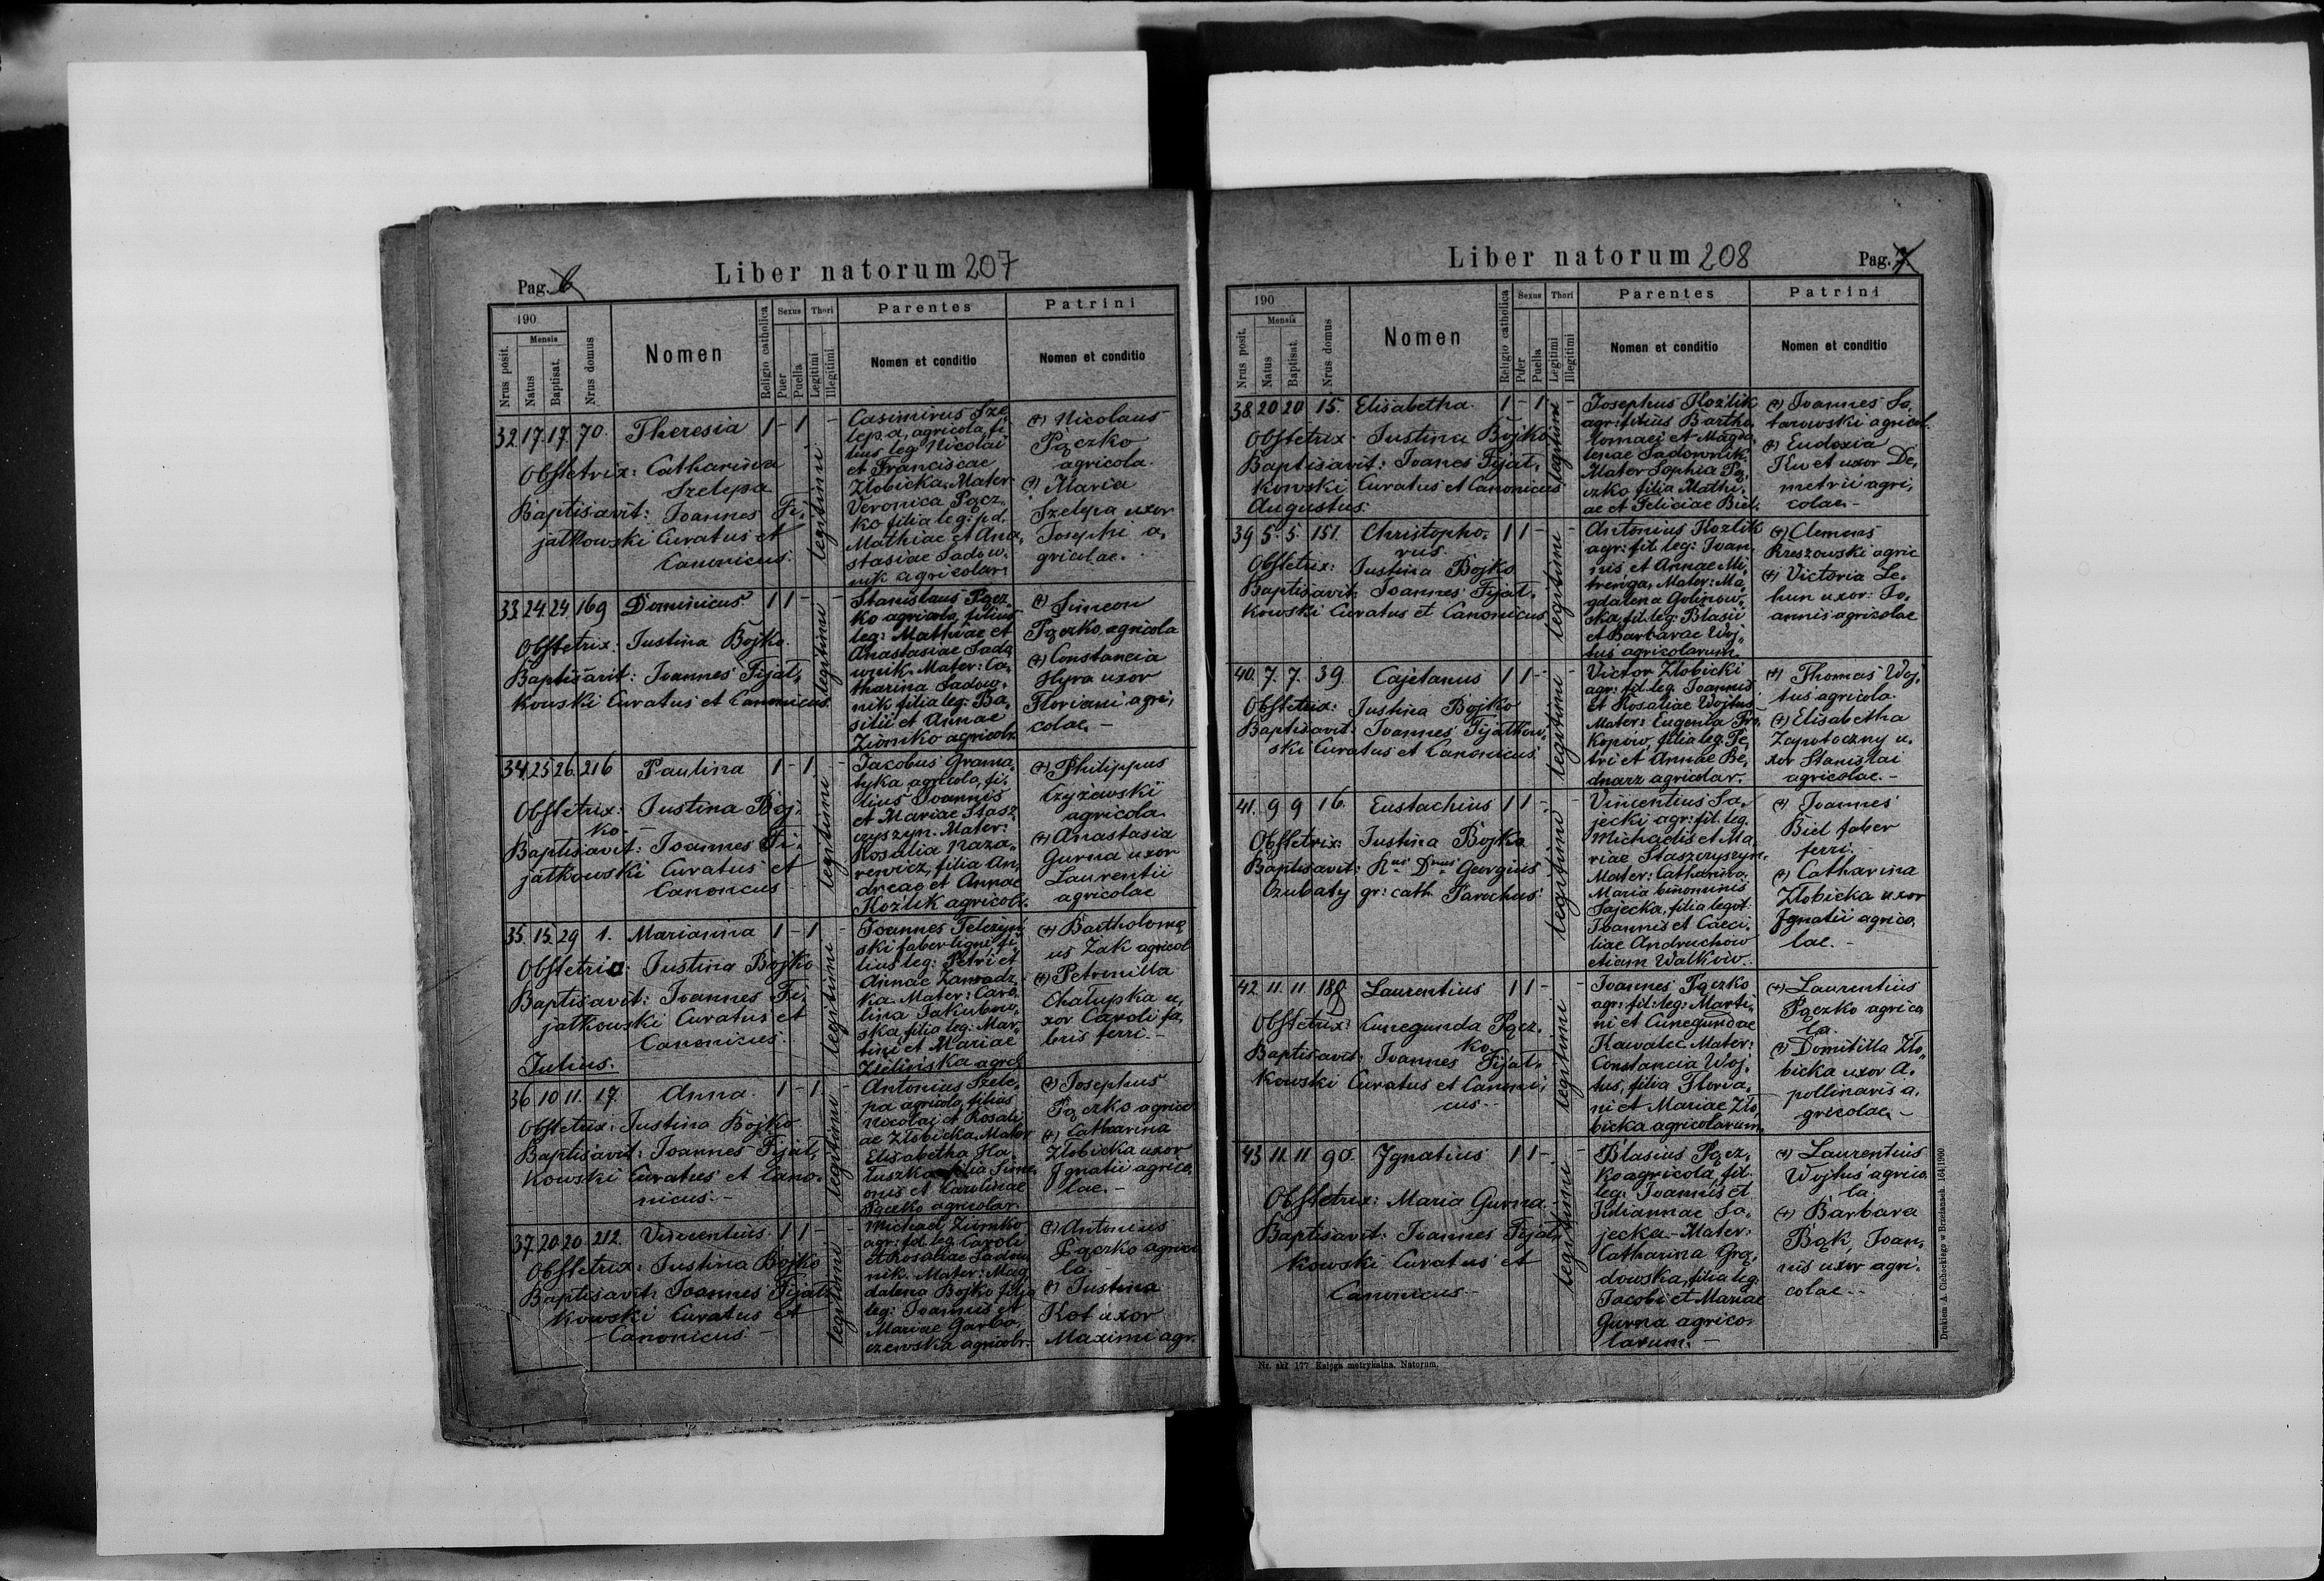 Liber natorum 207
Pag. 6
190
Nrus posit.
Mensis
Natus
Baptisat.
Nrus domus
Nomen
Religio catholica
Sexus
Puer
Puella
Thori
Legitimi
Illegitimi
Parentes
Nomen et conditio
Patrini
Nomen et conditio
32 17. 17. 70. Theresia 1 - 1 -
Obstetrix: Catharina
Szelepa
Baptisavit: Joannes Fi-
jałkowski Curatus et
Canonicus.
legitimi
Casimirus Sze
lepa, agricola, fi
lius leg: Nicolai
et Franciscae
Złobicka. Mater
Veronica Pącz-
ko filia leg: pd.
Mathiae et Ana-
stasiae Sadow-
nik agricolar.
(+) Nicolaus
Pączko
agricola.
(+) Maria
Szelepa uxor
Josephi a-
gricolae.
33. 24. 24. 169 Dominicus. 1 1 -
Obstetrix: Justina Bojko.
Baptisavit: Joannes Fijał-
kowski Curatus et Canonicus.
legitimi
Stanislaus Pącz-
ko agricola, filius
leg: Mathiae et
Anastasiae Sado
wnik. Mater: Ca-
tharina Sadow-
nik filia leg: Ba-
silii et Annae
Ziomko agricolr.
(+) Simeon
Pączko, agricola
(+) Constancia
Hyra uxor
Floriani agri-
colae. -
34. 25 26. 216 Paulina 1 - 1 -
Obstetrix: Justina Boj-
ko. -
Baptisavit: Joannes Fi-
jałkowski Curatus et
Canonicus
legitimi
Jacobus Grama-
tyka, agricola, fi-
lius Joannis
et Mariae Stasz
czyszyn. Mater:
Rosalia Naza-
rewicz, filia An-
dreae et Annae
Koźlik agricolr.
(+) Philippus
Czyżewski
agricola.
(+) Anastasia
Gurna uxor
Laurentii
agricolae
35. 15. 29 1. Marianna 1 - 1 -
Obstetrix: Justina Bojko
Baptisavit: Joannes Fi-
jałkowski Curatus et
Canonicus.
legitimi
Julius.
Joannes
ski faber ligni fi-
lius leg: Petri et
Annae
ka. Mater: Caro
lina Jakubow-
ska, filia leg: Mar-
tini et Mariae
Zielińska agrcl.
(+) Bartholomę
us Żak agricol
(+) Petronilla
Chałupka u-
xor Caroli fa-
bris ferri. -
36 10 11. 17. Anna. 1 - 1 -
Obstetrix: Justina Bojko
Baptisavit: Joannes Fijał-
kowski Curatus et Cano-
nicus. -
legitimi
Antonius Szele-
pa agricola, filius
Nicolai et Rosali
ae Złobicka. Mater
Elisabetha Ha-
łuszka filia Sime-
onis et Carolinae
Pączko agricolar.
(+) Josephus
Pączko agrico
(+) Catharina
Złobicka uxor
Ignatii agrico-
lae. -
37. 20 20. 212. Vincentius. 1 1 -
Obstetrix: Justina Bojko
Baptisavit: Joannes Fijał-
kowski Curatus et
- Canonicus -
legitimi
Michael Ziomko
agr: fil. leg. Caroli
et Rosaliae Sadow
nik. Mater: Mag
dalena Bojko filia
leg: Joannis et
Mariae Garba-
czewska agricolr.
(+) Antonius
Pączko agrico
la. -
(+) Justina
Kot uxor
Maximi agr.
Liber natorum 208
Pag. 7
190
Nrus posit.
Mensis
Natus
Baptisat.
Nrus domus
Nomen
Religio catholica
Sexus
Puer
Puella
Thori
Legitimi
Illegitimi
Parentes
Nomen et conditio
Patrini
Nomen et conditio
38. 20 20 15. Elisabetha. 1 - 1 -
Obstetrix: Justina Bojko
Baptisavit: Joannes Fijał-
kowski Curatus et Canonicus
Augustus:
legitimi
Josephus Koźlik
agr: filius Bartho-
lomaei et Magda-
lenae Sadownik.
Mater Sophia Pą-
czko filia Mathi-
ae et Feliciae Biel.
(+) Joannes
agricol.
(+) Eudoxia
uxor De-
metrii agri-
colae. -
39 5. 5. 151. Christopho- 1 1 -
rus
Obstetrix: Justina Bojko
Baptisavit: Joannes Fijał-
kowski Curatus et Canonicus
legitimi
Antonius Kozlik
agr: fil. leg: Joan-
nis et Annae Mi-
trenga, Mater: Ma
gdalena Golinow-
ska, fil. leg: Blasii
et Barbarae Woj-
tuś agricolarum.
(+) Clemens
Kreszowski agric
(+) Victoria Le-
hun uxor: Jo-
annis agricolae
40. 7. 7. 39. Cajetanus 1 1 -
Obstetrix: Justina Bojko
Baptisavit: Joannes Fijałkow-
ski Curatus et Canonicus.
legitimi
Victor Złobicki
agr: fil. leg. Joannis
et Rosaliae Wojtus
Mater: Eugenia Pro-
kopów, filia leg. Pe-
tri et Annae Be-
dnarz agricolar.
(+) Thomas Woj-
tuś agricola.
(+) Elisabetha
Zapotoczny u-
xor Stanislai
agricolae. -
41. 9 9 16. Eustachius 1 1 -
Obstetrix: Justina Bojko
Baptisavit: Rnus Dnus Georgius
Czubaty gr: cath. Parochus:
legitimi
Vincentius Sa-
jecki agr: fil. leg.
Michaelis et Ma-
riae Staszczyszyn.
Mater: Catharina
Maria binominis
Sajecka, filia legit.
Joannis et Caeci-
liae Andruchow
etiam Walkow.
(+) Joannes
Biel faber
ferri. -
(+) Catharina
Złobicka uxor
Ignatii agrico-
lae. -
42 11. 11. 188 Laurentius 1 1 -
Obstetrix: Cunegunda Pącz-
ko
Baptisavit: Joannes Fijał-
kowski Curatus et Canoni-
cus. -
legitimi
Joannes Pączko
agr: fil: leg: Marti-
ni et Cunegundae
Kawalec. Mater:
Constancia Woj-
tus, filia Floria-
ni et Mariae Zło-
bicka agricolarum.
(+) Laurentius
Pączko agrico
la.
(+) Domitilla Zło-
bicka uxor A-
pollinaris a-
gricolae. -
43 11. 11. 90. Ignatius 1 1 -
Obstetrix: Maria Gurna.
Baptisavit: Joannes Fijał-
kowski Curatus et
Canonicus -
legitimi
Blasius Pącz-
ko agricola, fil.
leg: Joannis et
Juliannae Sa-
jecka - Mater:
Catharina Grą-
dowska, filia leg.
Jacobi et Mariae
Gurna agrico-
larum. -
(+) Laurentius
Wojtuś agrico-
la.
(+) Barbara
Bąk, Joan-
nis uxor agri-
colae. -
Nr. skł 177 Księga metrykalna. Natorum.
Drukiem A. Cichockiego w Brzeżanach. 164|1900